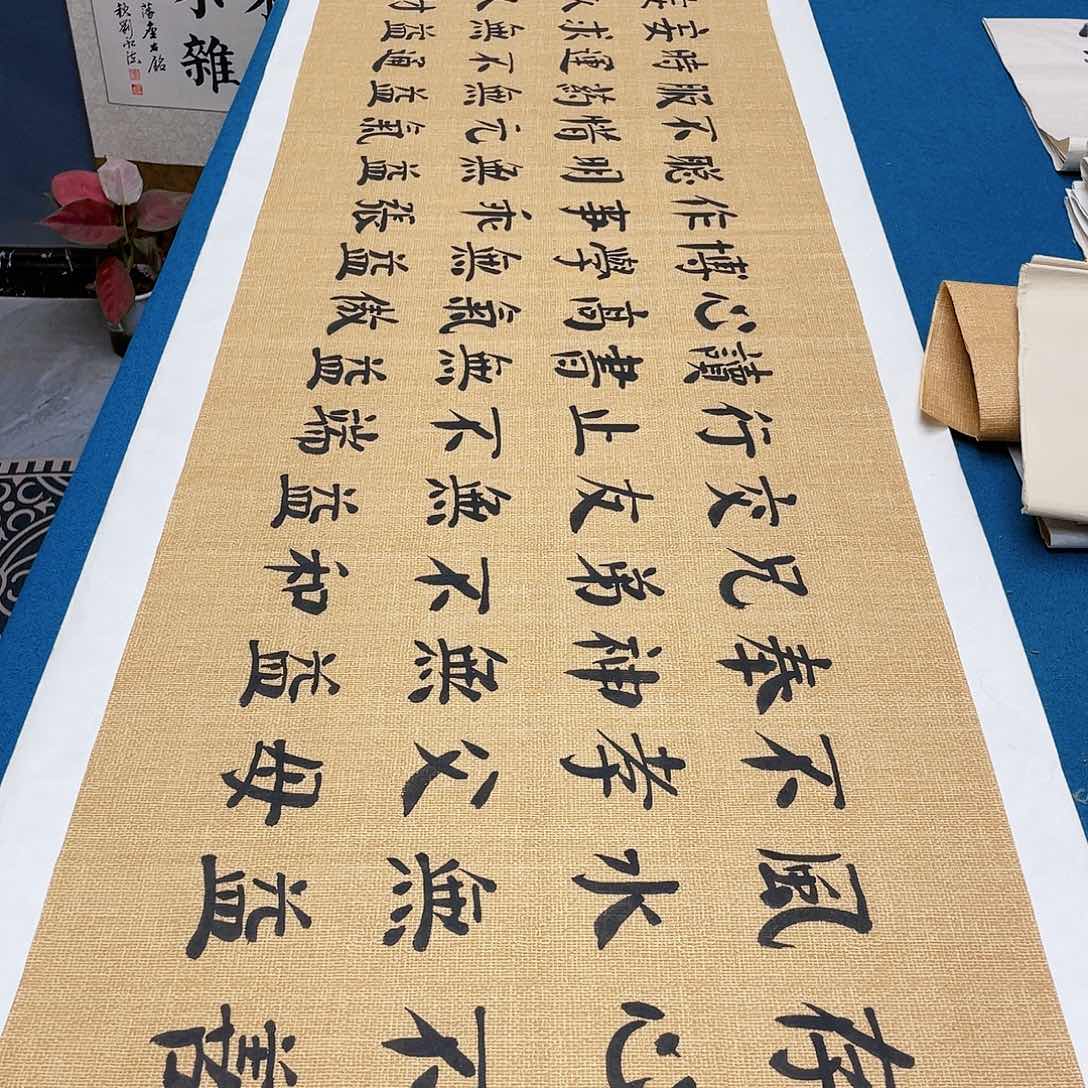 存心不善
風水無益
不孝父母
奉神無益
兄弟不和
交友無益
行止不端
讀書無益
心高氣傲
博學無益
作事乖張
聰明無益
不惜元氣
服药無益
時運不通
妄求無益
雜